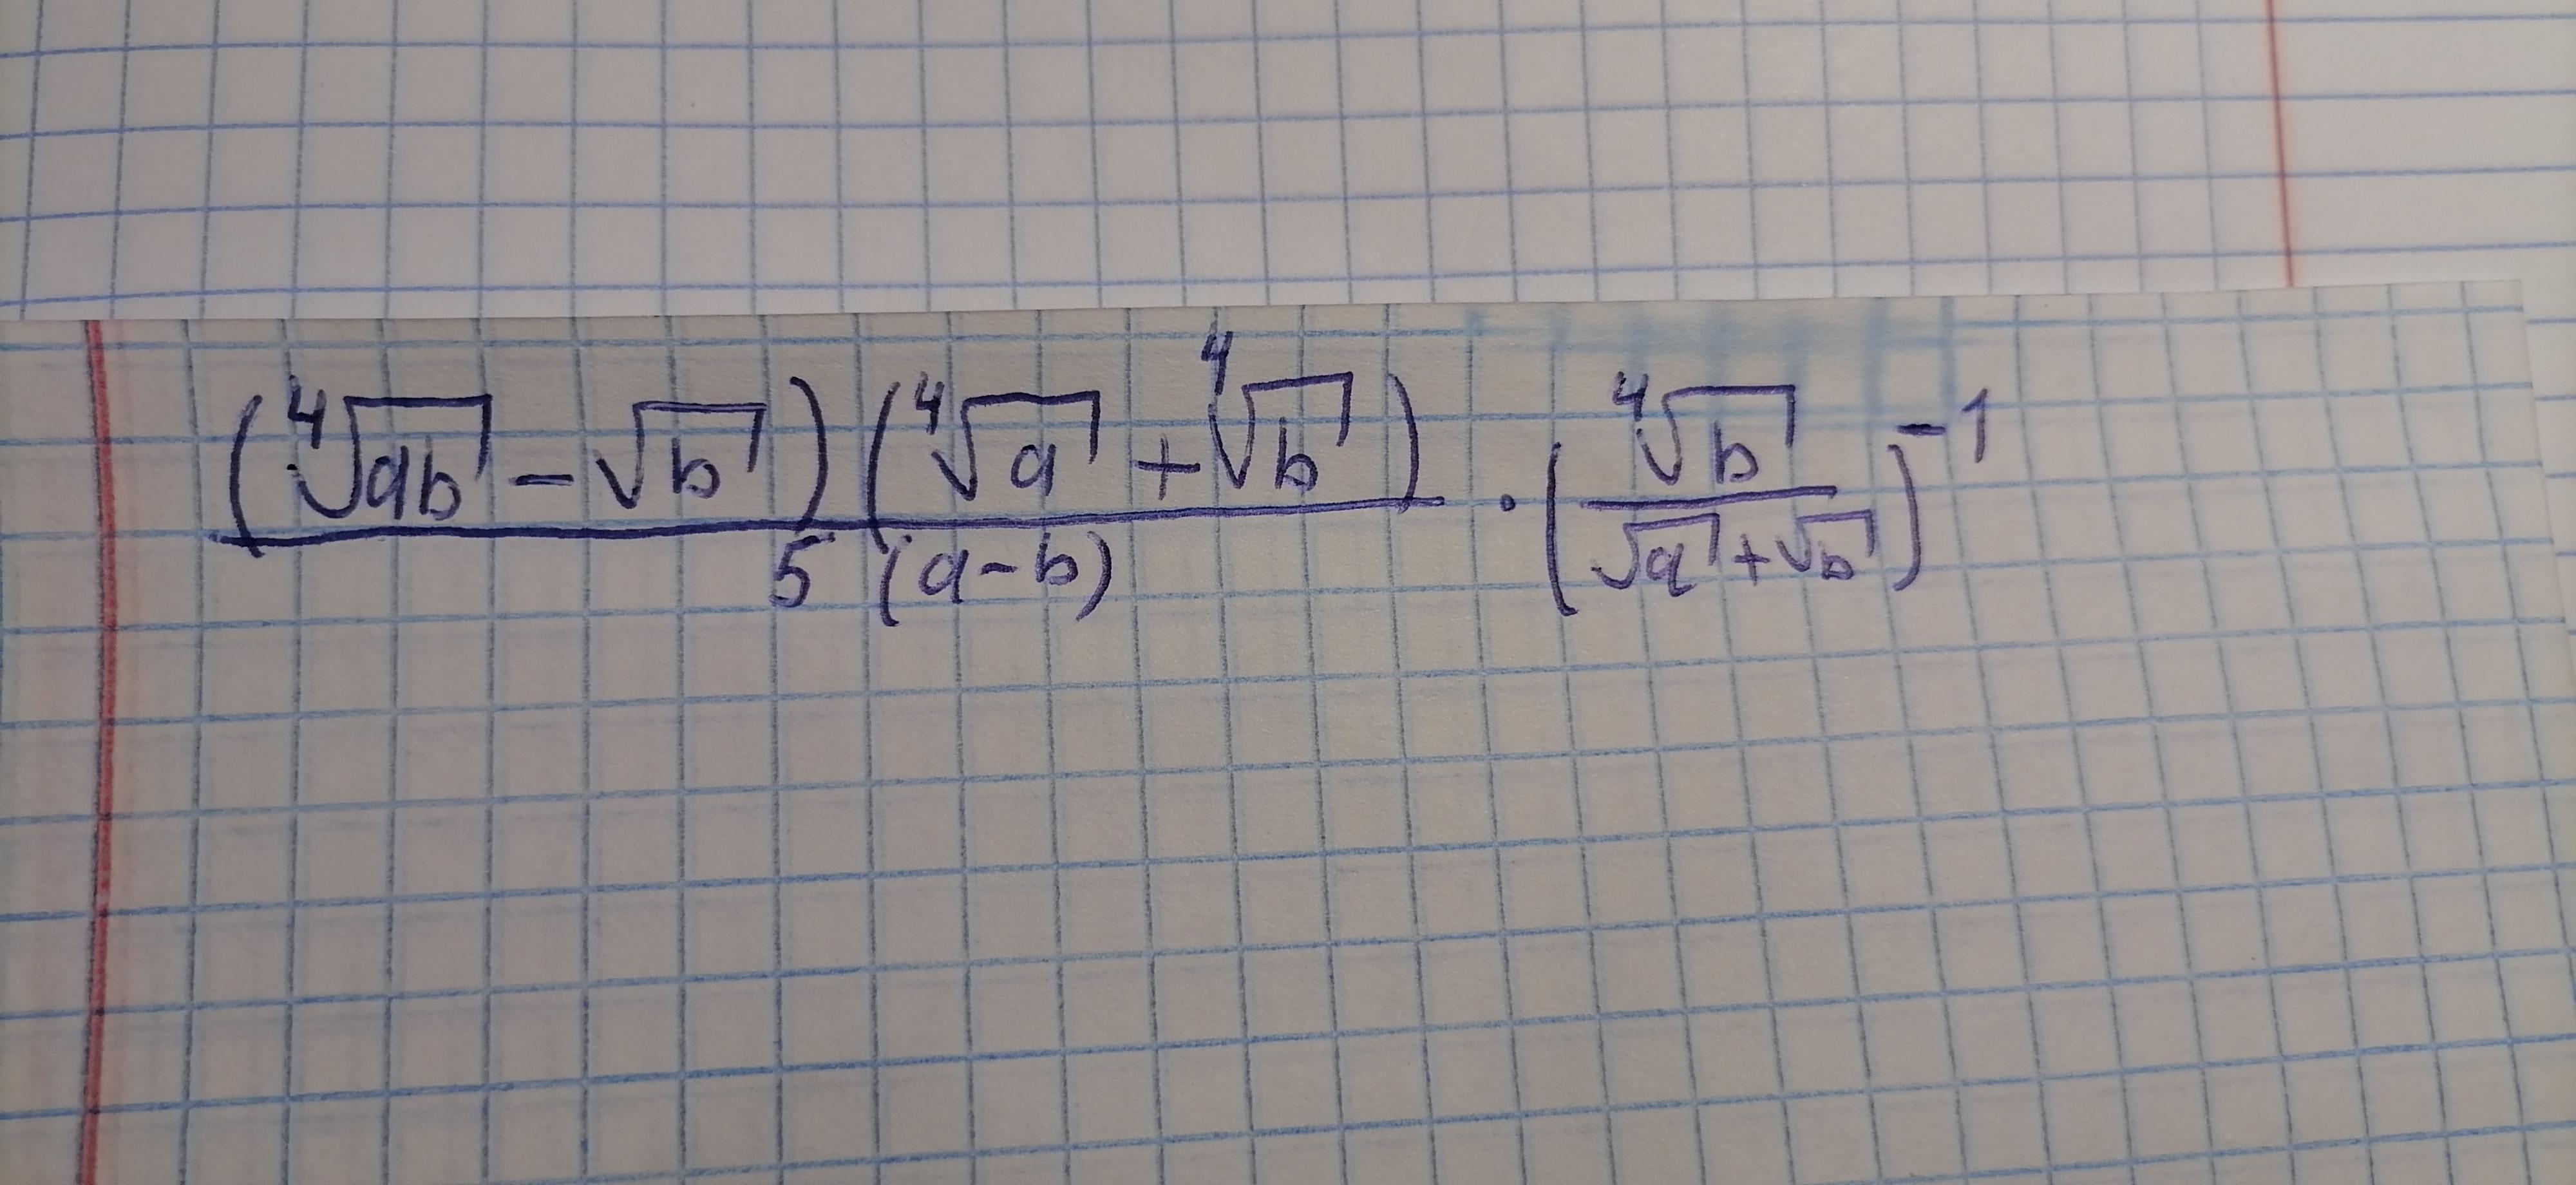 \frac{(\sqrt[4]{ab} - \sqrt{b})(\sqrt[4]{a} + \sqrt[4]{b})}{5(a-b)} \cdot \left(\frac{\sqrt[4]{b}}{\sqrt{a} + \sqrt{b}}\right)^{-1}